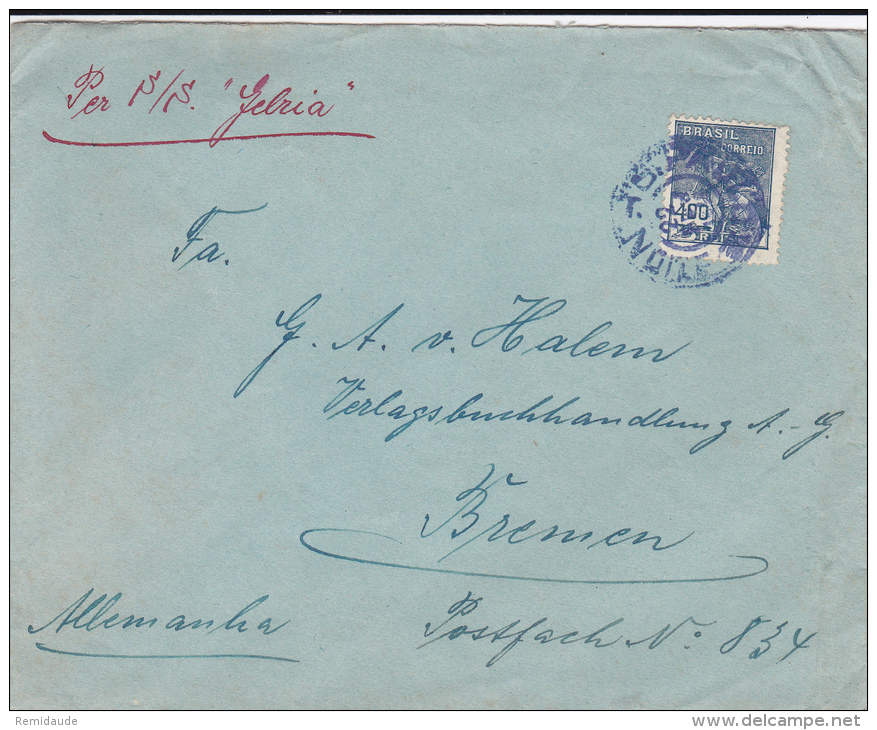 Per S/S. "Gelria"
BRASIL
CORREIO
400
T.
NOITE
Fa.
G. A. v. Halem
Verlagsbuchhandlung A.-G.
Bremen
Allemanha
Postfach No: 834
Remidaude
www.delcampe.net